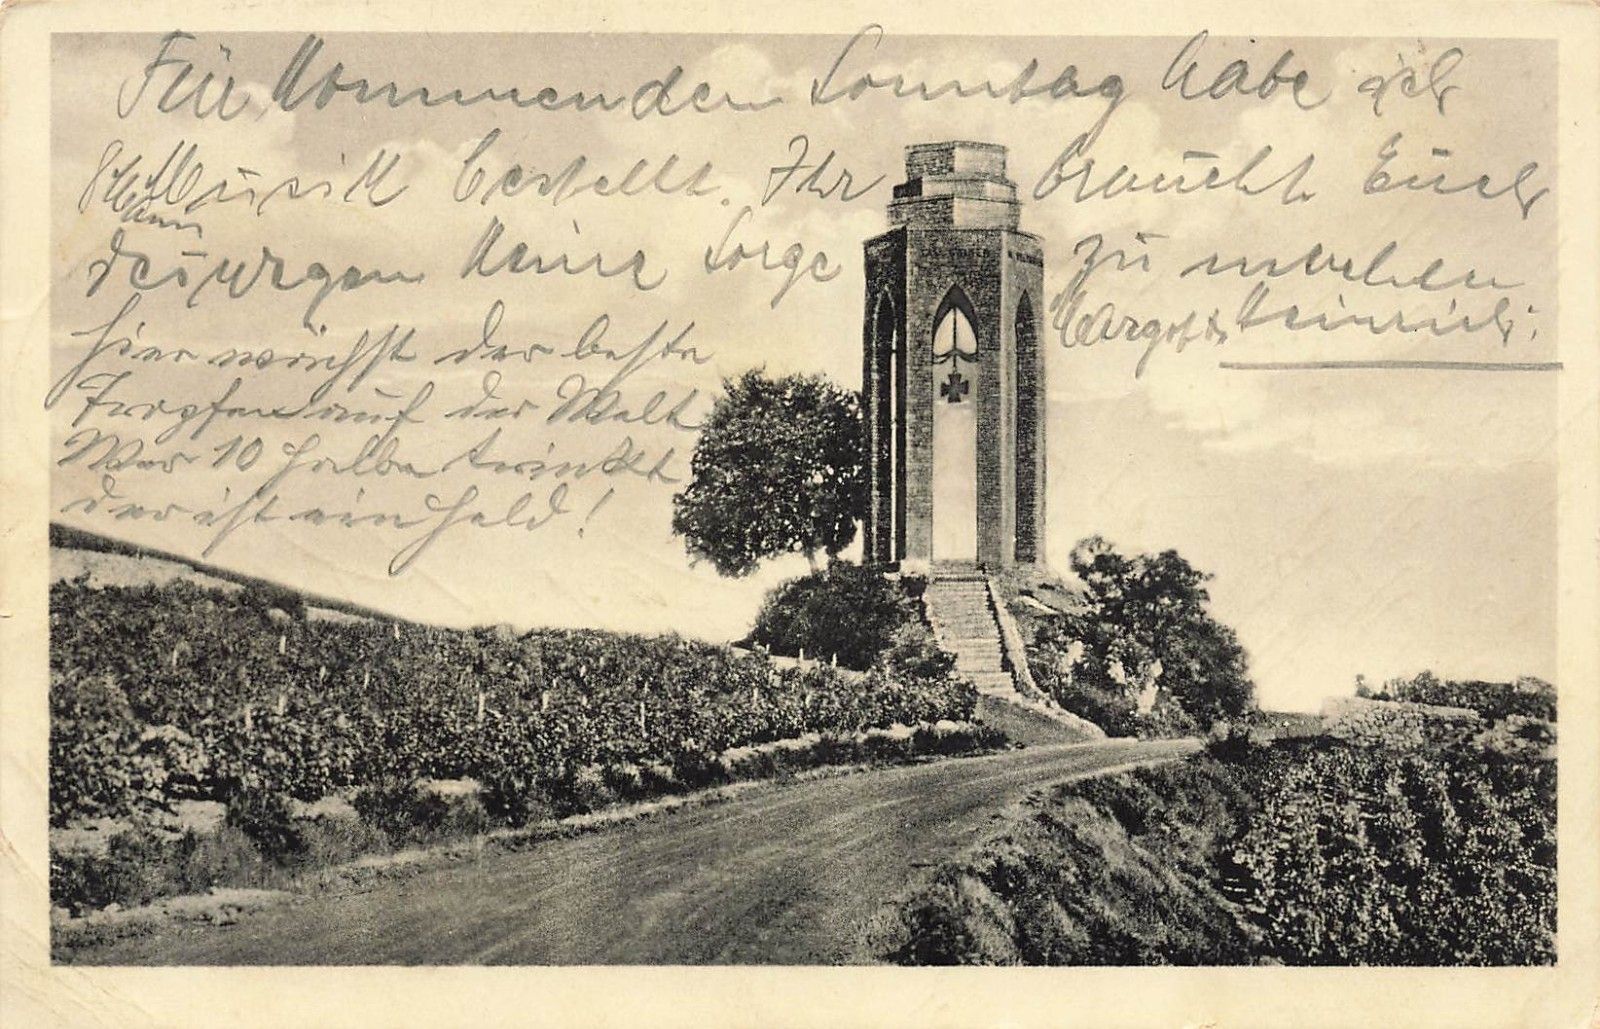 Für Kommenden Sonntag habe ich
Musik bestellt. Ihr braucht Euch
deswegen Keine Sorge zu machen
Heinrich.
hier wächst der beste
Tropfen auf der Welt
Wer 10 halbe trinkt
der ist ein Held!